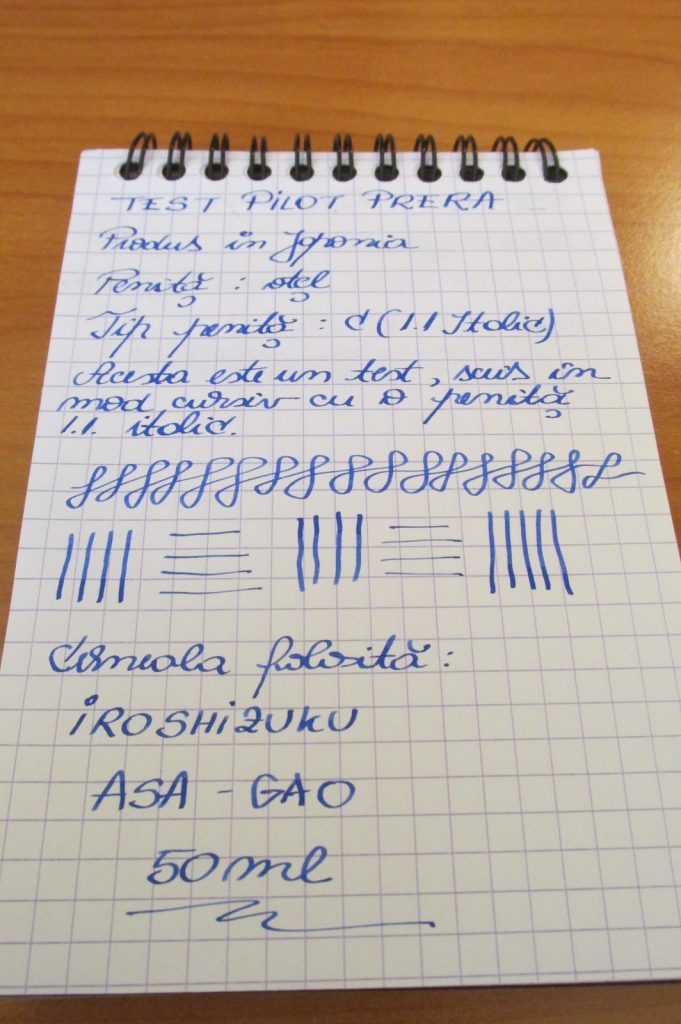 TEST PILOT PRERA
Produs în Japonia
Peniță : oțel
Tip peniță : C (1.1 Italic)
Acesta este un test, scris în
mod cursiv cu o peniță
1.1. italic.
Cerneala folosită :
IROSHIZUKU
ASA - GAO
50 ml